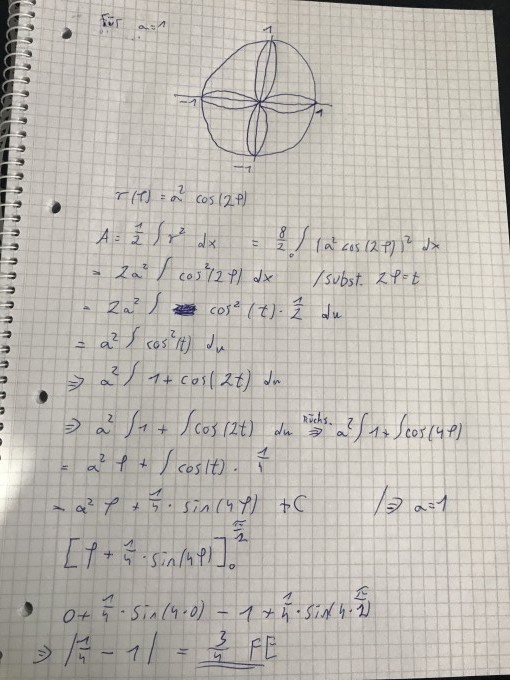 Für a=1
1
-1
1
-1
r(φ) = a² cos(2φ)
A = 1/2 ∫ r² dx = 8/2 ₀∫ (a² cos(2φ))² dx
= 2a² ∫ cos²(2φ) dx /subst. 2φ=t
= 2a² ∫ cos²(t) · 1/2 du
= a² ∫ cos²(t) du
⇒ a² ∫ 1 + cos(2t) du
⇒ a² ∫ 1 + ∫ cos(2t) du Rücks. ⇒ a² ∫ 1 + ∫ cos(4φ)
= a² φ + ∫ cos(t) · 1/4
= a² φ + 1/4 · sin(4φ) + C /⇒ a=1
[φ + 1/4 · sin(4φ)]₀^(π/2)
0 + 1/4 · sin(4·0) - 1 + 1/4 · sin(4·π/2)
⇒ |1/4 - 1| = 3/4 FE